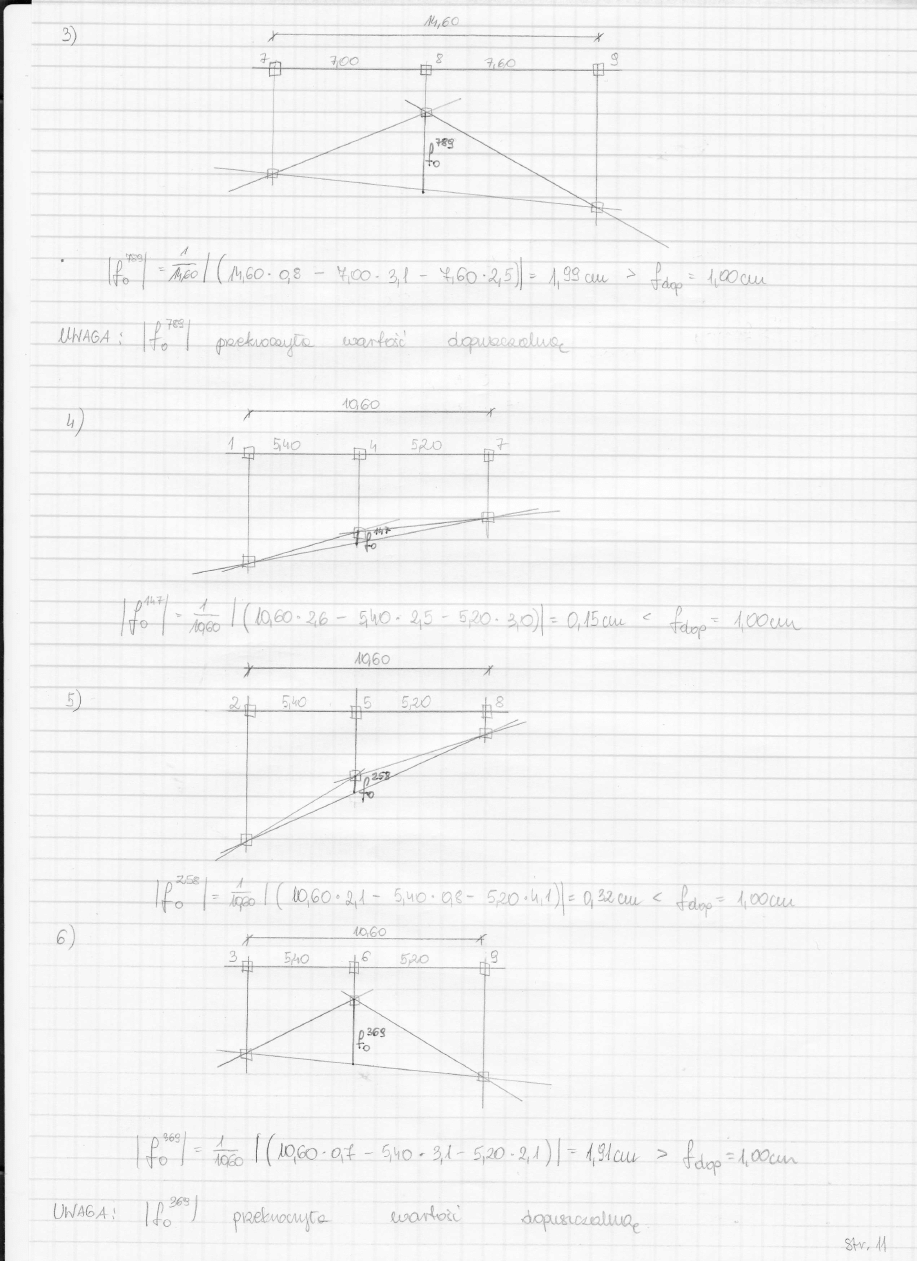 3)
14,60
7 7,00 8 7,60 9
f₀⁷⁸⁹
|f₀⁷⁸⁹| = 1/14,60 |(14,60·0,8 − 7,00·3,1 − 7,60·2,5)| = 1,99cm > fdop = 1,00cm
UWAGA: |f₀⁷⁸⁹| przekroczyła wartość dopuszczalną
4)
10,60
1 5,40 4 5,20 7
f₀¹⁴⁷
|f₀¹⁴⁷| = 1/10,60 |(10,60·2,6 − 5,40·2,5 − 5,20·3,0)| = 0,15cm < fdop = 1,00cm
10,60
5)
2 5,40 5 5,20 8
f₀²⁵⁸
|f₀²⁵⁸| = 1/10,60 |(10,60·2,1 − 5,40·0,8 − 5,20·4,1)| = 0,32cm < fdop = 1,00cm
6)
10,60
3 5,40 6 5,20 9
f₀³⁶⁹
|f₀³⁶⁹| = 1/10,60 |(10,60·0,7 − 5,40·3,1 − 5,20·2,1)| = 1,91cm > fdop = 1,00cm
UWAGA: |f₀³⁶⁹| przekroczyła wartość dopuszczalną
Str. 11